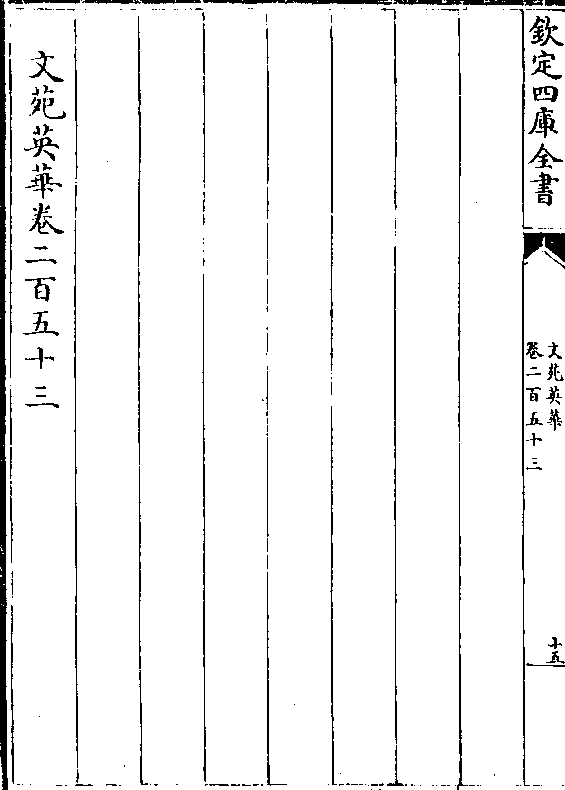 欽定四庫全書
文苑英華
卷二百五十三
十五
文苑英華卷二百五十三